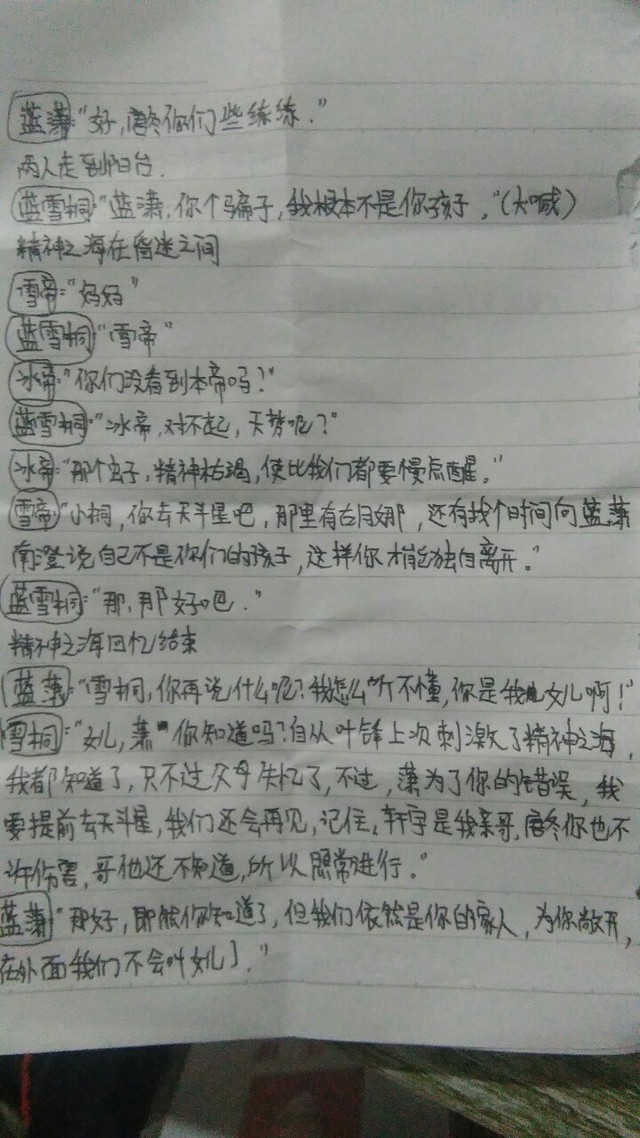 蓝萧:"好,唐冬你们些练练."
两人走到阳台.
蓝雪桐:"蓝萧,你个骗子,我根本不是你孩子。"(大喊)
精神之海在昏迷之间
雪帝:"妈妈"
蓝雪桐"雪帝"
冰帝:"你们没看到本帝吗?"
蓝雪桐:"冰帝,对不起,天梦呢?"
冰帝:"那个虫子,精神枯竭,使比我们都要慢点醒。"
雪帝"小桐,你去天斗星吧,那里有古月娜,还有找个时间向蓝萧
南澄说自己不是你们的孩子,这样你才能独自离开。"
蓝雪桐:"那,那好吧."
精神之海回忆结束
蓝萧:"雪桐,你再说什么呢?我怎么听不懂,你是我女儿啊!"
雪桐:"女儿,萧你知道吗?自从叶锋上次刺激了精神之海,
我都知道了,只不过父母失忆了,不过,萧为了你的错误,我
要提前去天斗星,我们还会再见,记住,轩宇是我亲哥,唐冬你也不
许伤害,哥他还不知道,所以照常进行。"
蓝萧"那好,即然你知道了,但我们依然是你的家人,为你敞开,
在外面我们不会叫女儿."